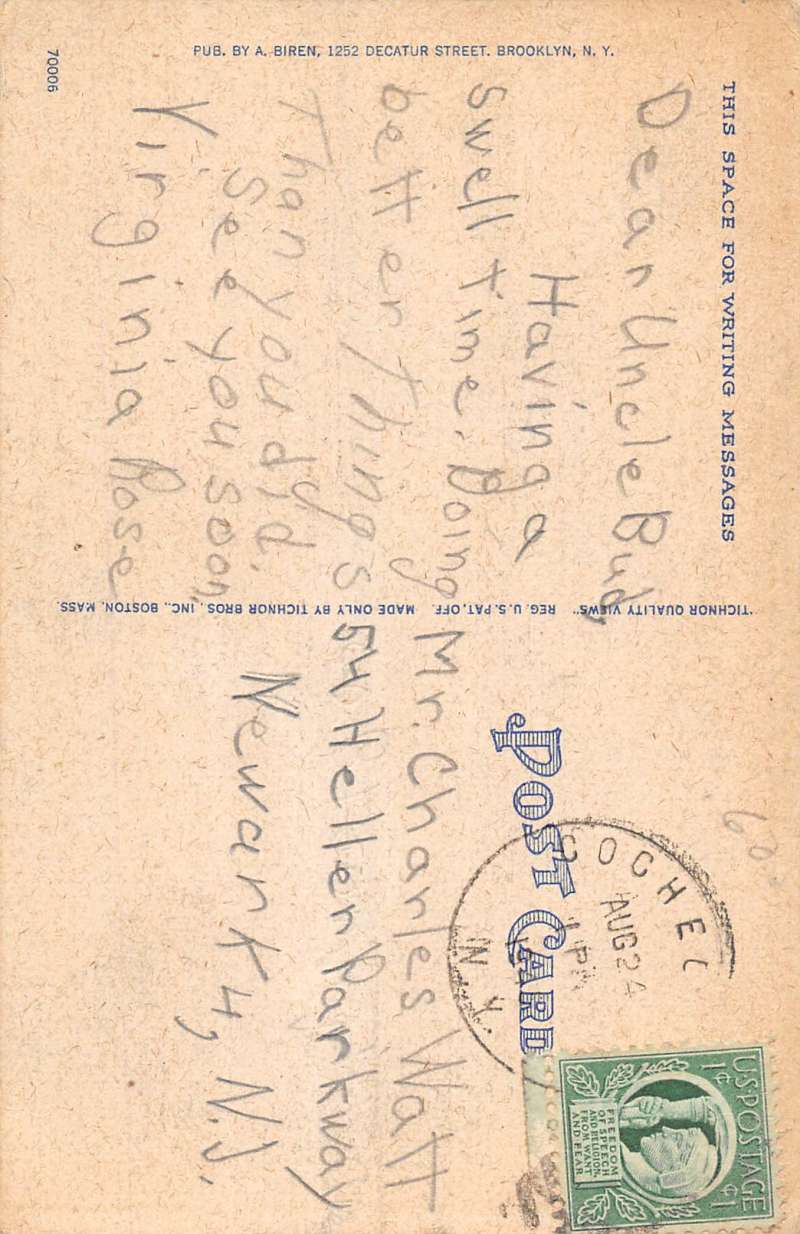 THIS SPACE FOR WRITING MESSAGES
Dear Uncle Bud,
Having a
swell time. Doing
better things
than you did.
See you soon
Virginia Rose
PUB. BY A. BIREN, 1252 DECATUR STREET. BROOKLYN, N. Y.
70006
"TICHNOR QUALITY VIEWS" REG. U. S. PAT. OFF. MADE ONLY BY TICHNOR BROS., INC., BOSTON, MASS.
POST CARD
60
OCHEL
AUG 24
1 PM
N.Y.
U.S. POSTAGE
1¢ 1¢
FREEDOM
OF SPEECH
AND RELIGION,
FROM WANT
AND FEAR
Mr. Charles Watt
54 Heller Parkway
Newark 4, N.J.